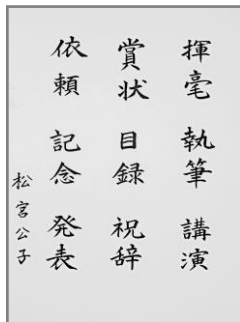 揮毫 執筆 講演
賞状 目録 祝辞
依頼 記念 発表
松宮公子